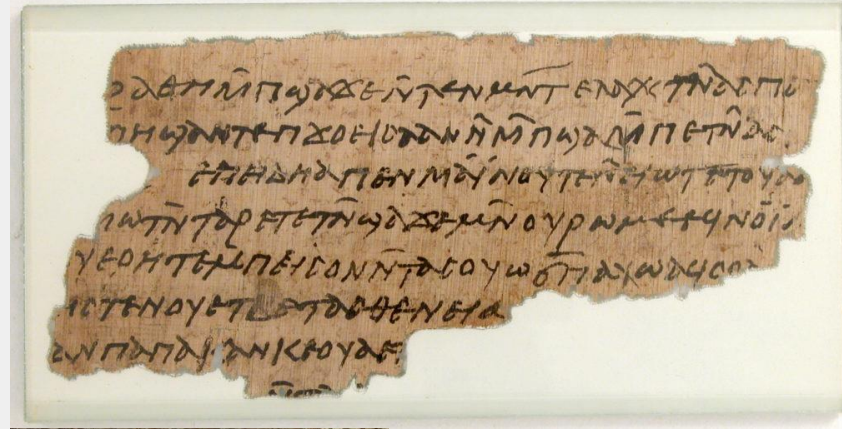 ϩⲁⲑⲏ ⲙ̄ⲡϣⲁϫⲉ ⲛ̄ⲧⲉⲛⲙⲛ̄ⲧⲉⲗⲁⲭ ⲧⲛ̄ⲁⲥⲡⲁ
ϣⲁⲛⲧⲉⲡϫⲟⲉⲓⲥ ⲁⲁⲛ ⲛ̄ⲙ̄ⲡϣⲁ ⲙ̄ⲡⲉⲧⲛ̄ⲁⲥ
ⲉⲡⲉⲓⲇⲏ ⲁⲡⲉⲛⲙⲁⲓ̈ⲛⲟⲩⲧⲉ ⲛ̄ⲉⲓⲱⲧ ⲉⲧⲟⲩⲁ
ⲛⲱⲧⲛ̄ ⲧⲁⲣⲉⲧⲉⲧⲛ̄ϣⲁϫⲉ ⲙⲛ̄ⲟⲩⲣⲱⲙⲉ ⲉϥⲛⲟⲓ̈
ⲧⲉ ⲙ̄ⲡⲉⲓⲥⲟⲛ ⲛ̄ⲧⲁⲥⲟⲩⲱϭⲡ̄ ⲁⲩⲱ ⲁϥⲥⲟ
ⲧⲉⲛⲟⲩ ⲉⲧⲃⲉⲧⲁⲥⲑⲉⲛⲉⲓⲁ
ⲁⲛⲡⲁⲡⲁⲓ̈ ⲁⲛⲕⲉⲟⲩⲁⲉ